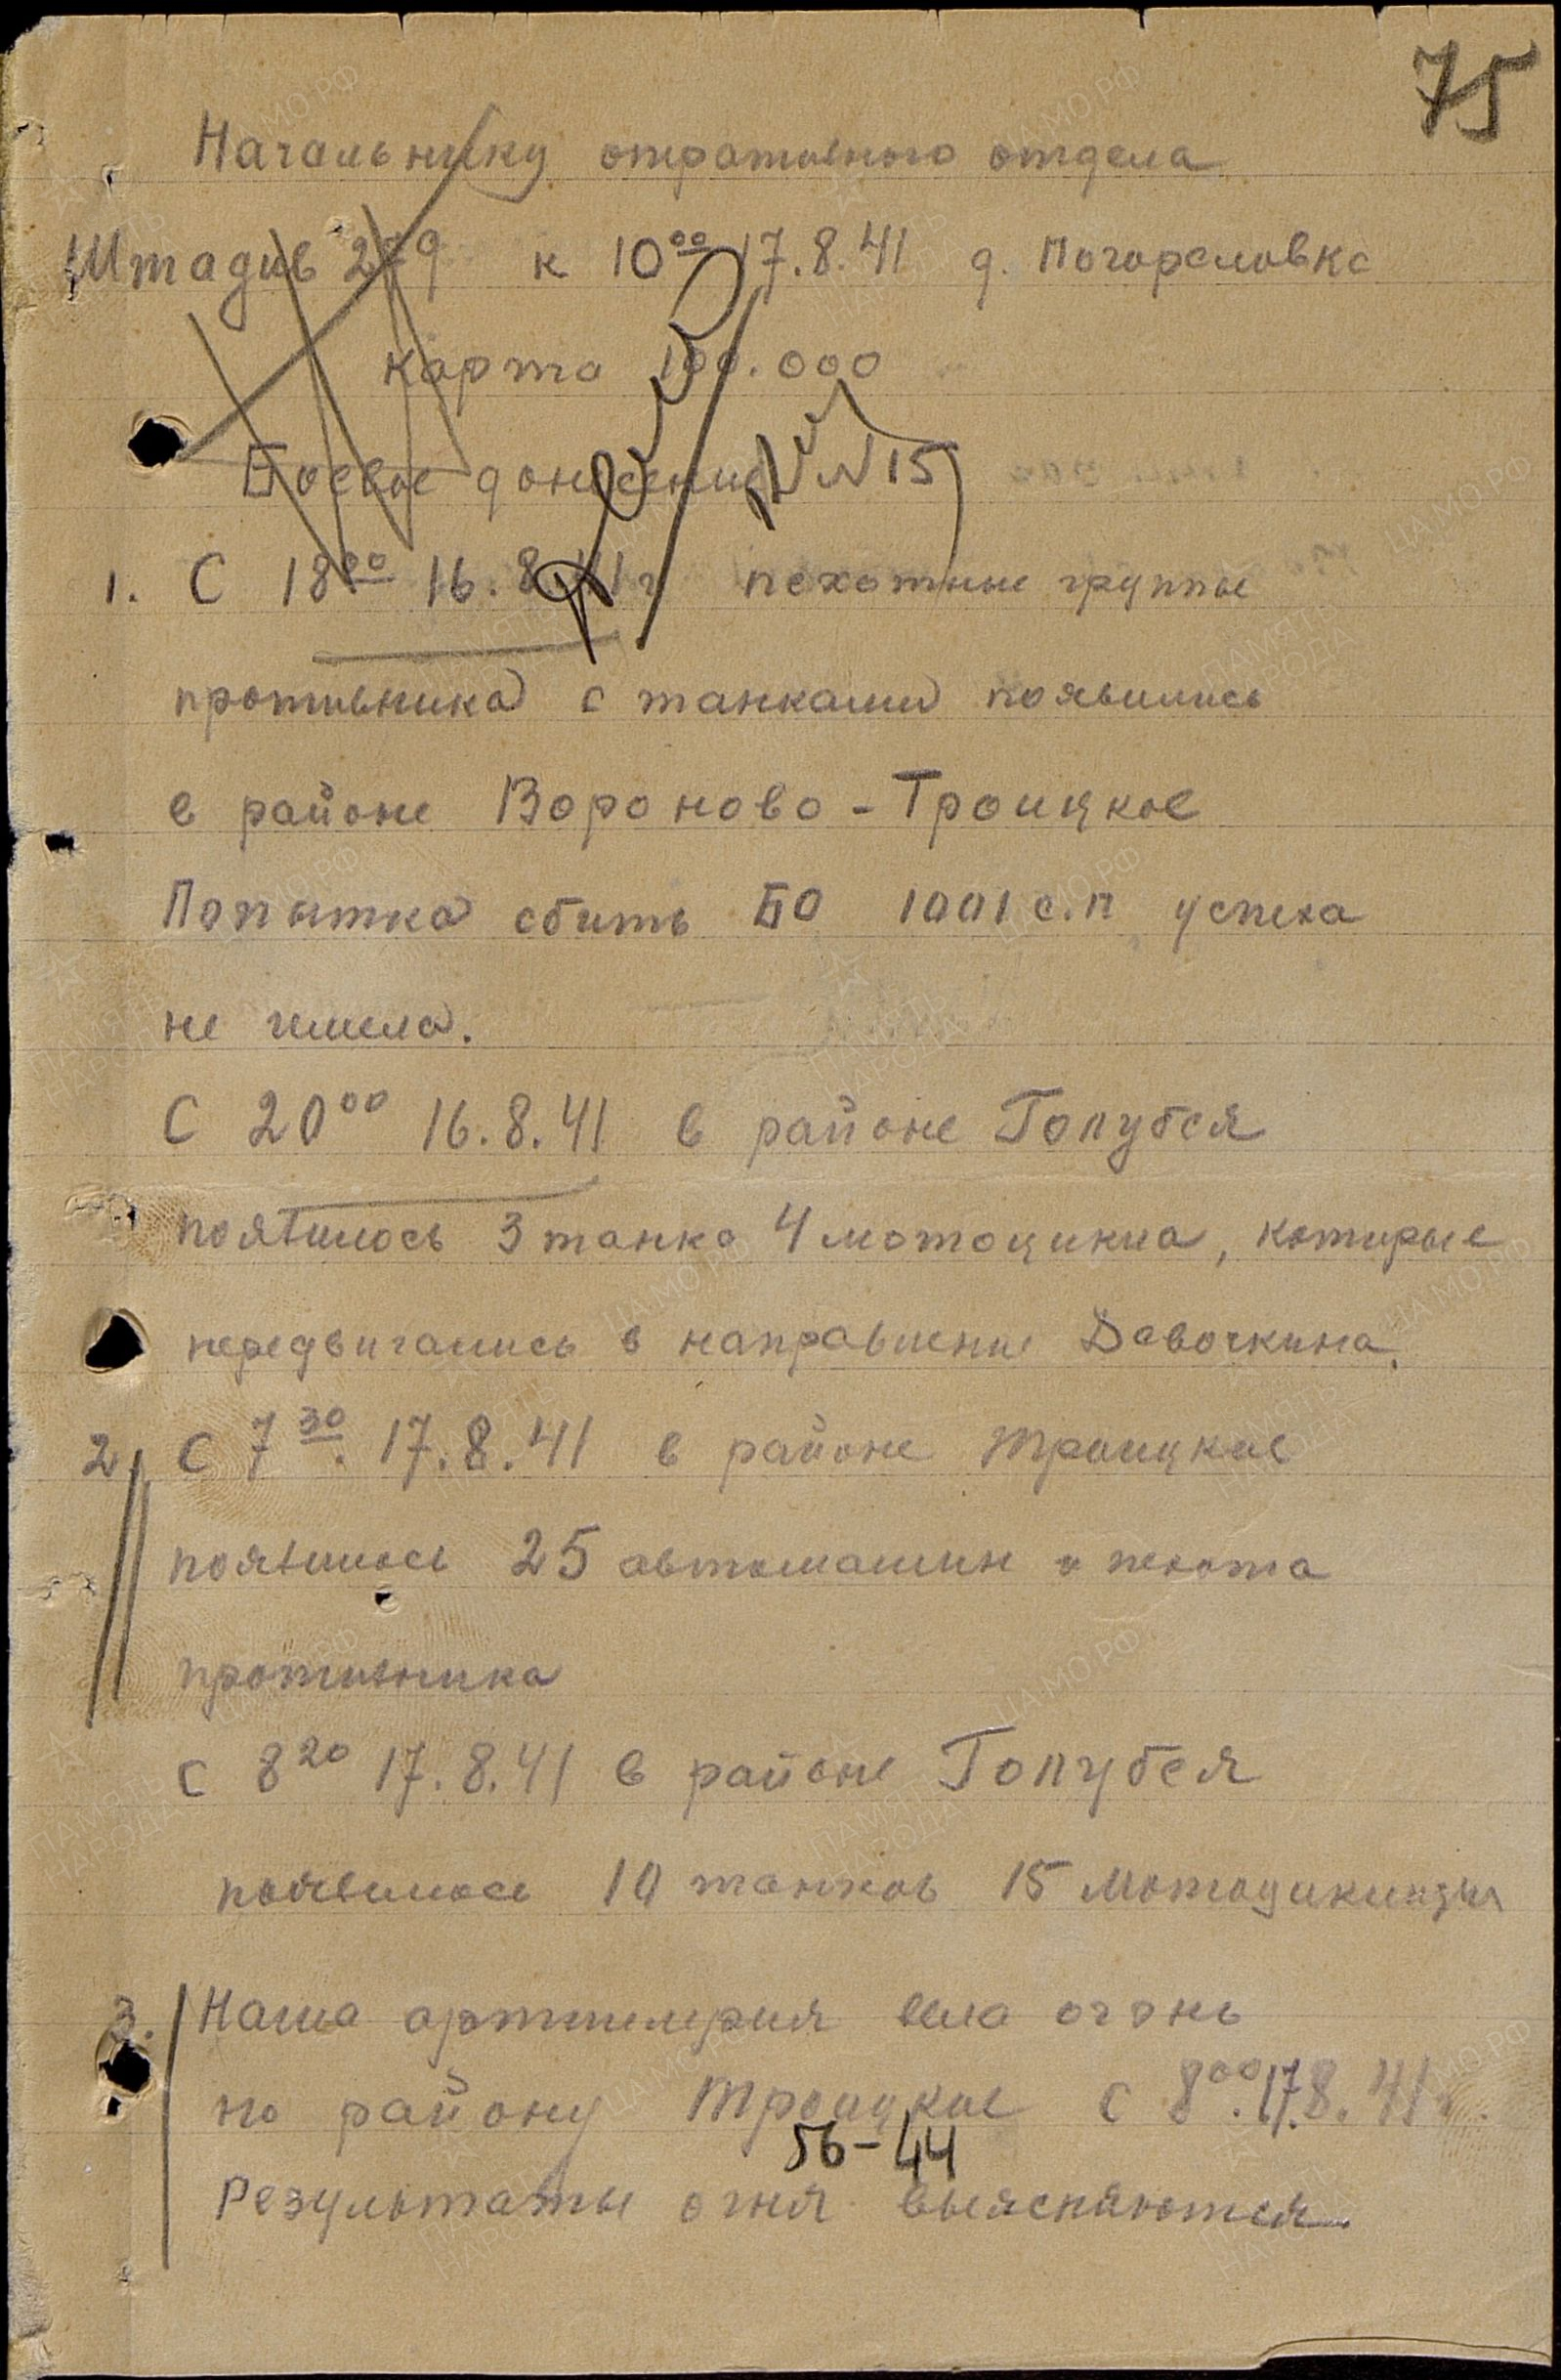 75
Начальнику оперативного отдела
Штадив 279 к 10⁰⁰ 17.8.41 д. Погореловка
карта 100.000
Боевое донесение N 15
1. С 18⁰⁰ 16.8.41 г пехотные группы
противника с танками появились
в районе Вороново - Троицкое
Попытка сбить БО 1001 с.п успеха
не имела.
С 20⁰⁰ 16.8.41 в районе Голубея
появилось 3 танка 4 мотоцикла, которые
передвигались в направлении Девочкина.
2. С 7³⁰ 17.8.41 в районе Троицкое
появилось 25 автомашин и пехота
противника
с 8²⁰ 17.8.41 в районе Голубея
появилось 10 танков 15 мотоциклы
3. Наша артиллерия вела огонь
по району Троицкое с 8⁰⁰ 17.8.41
56-44
Результаты огня выясняются.